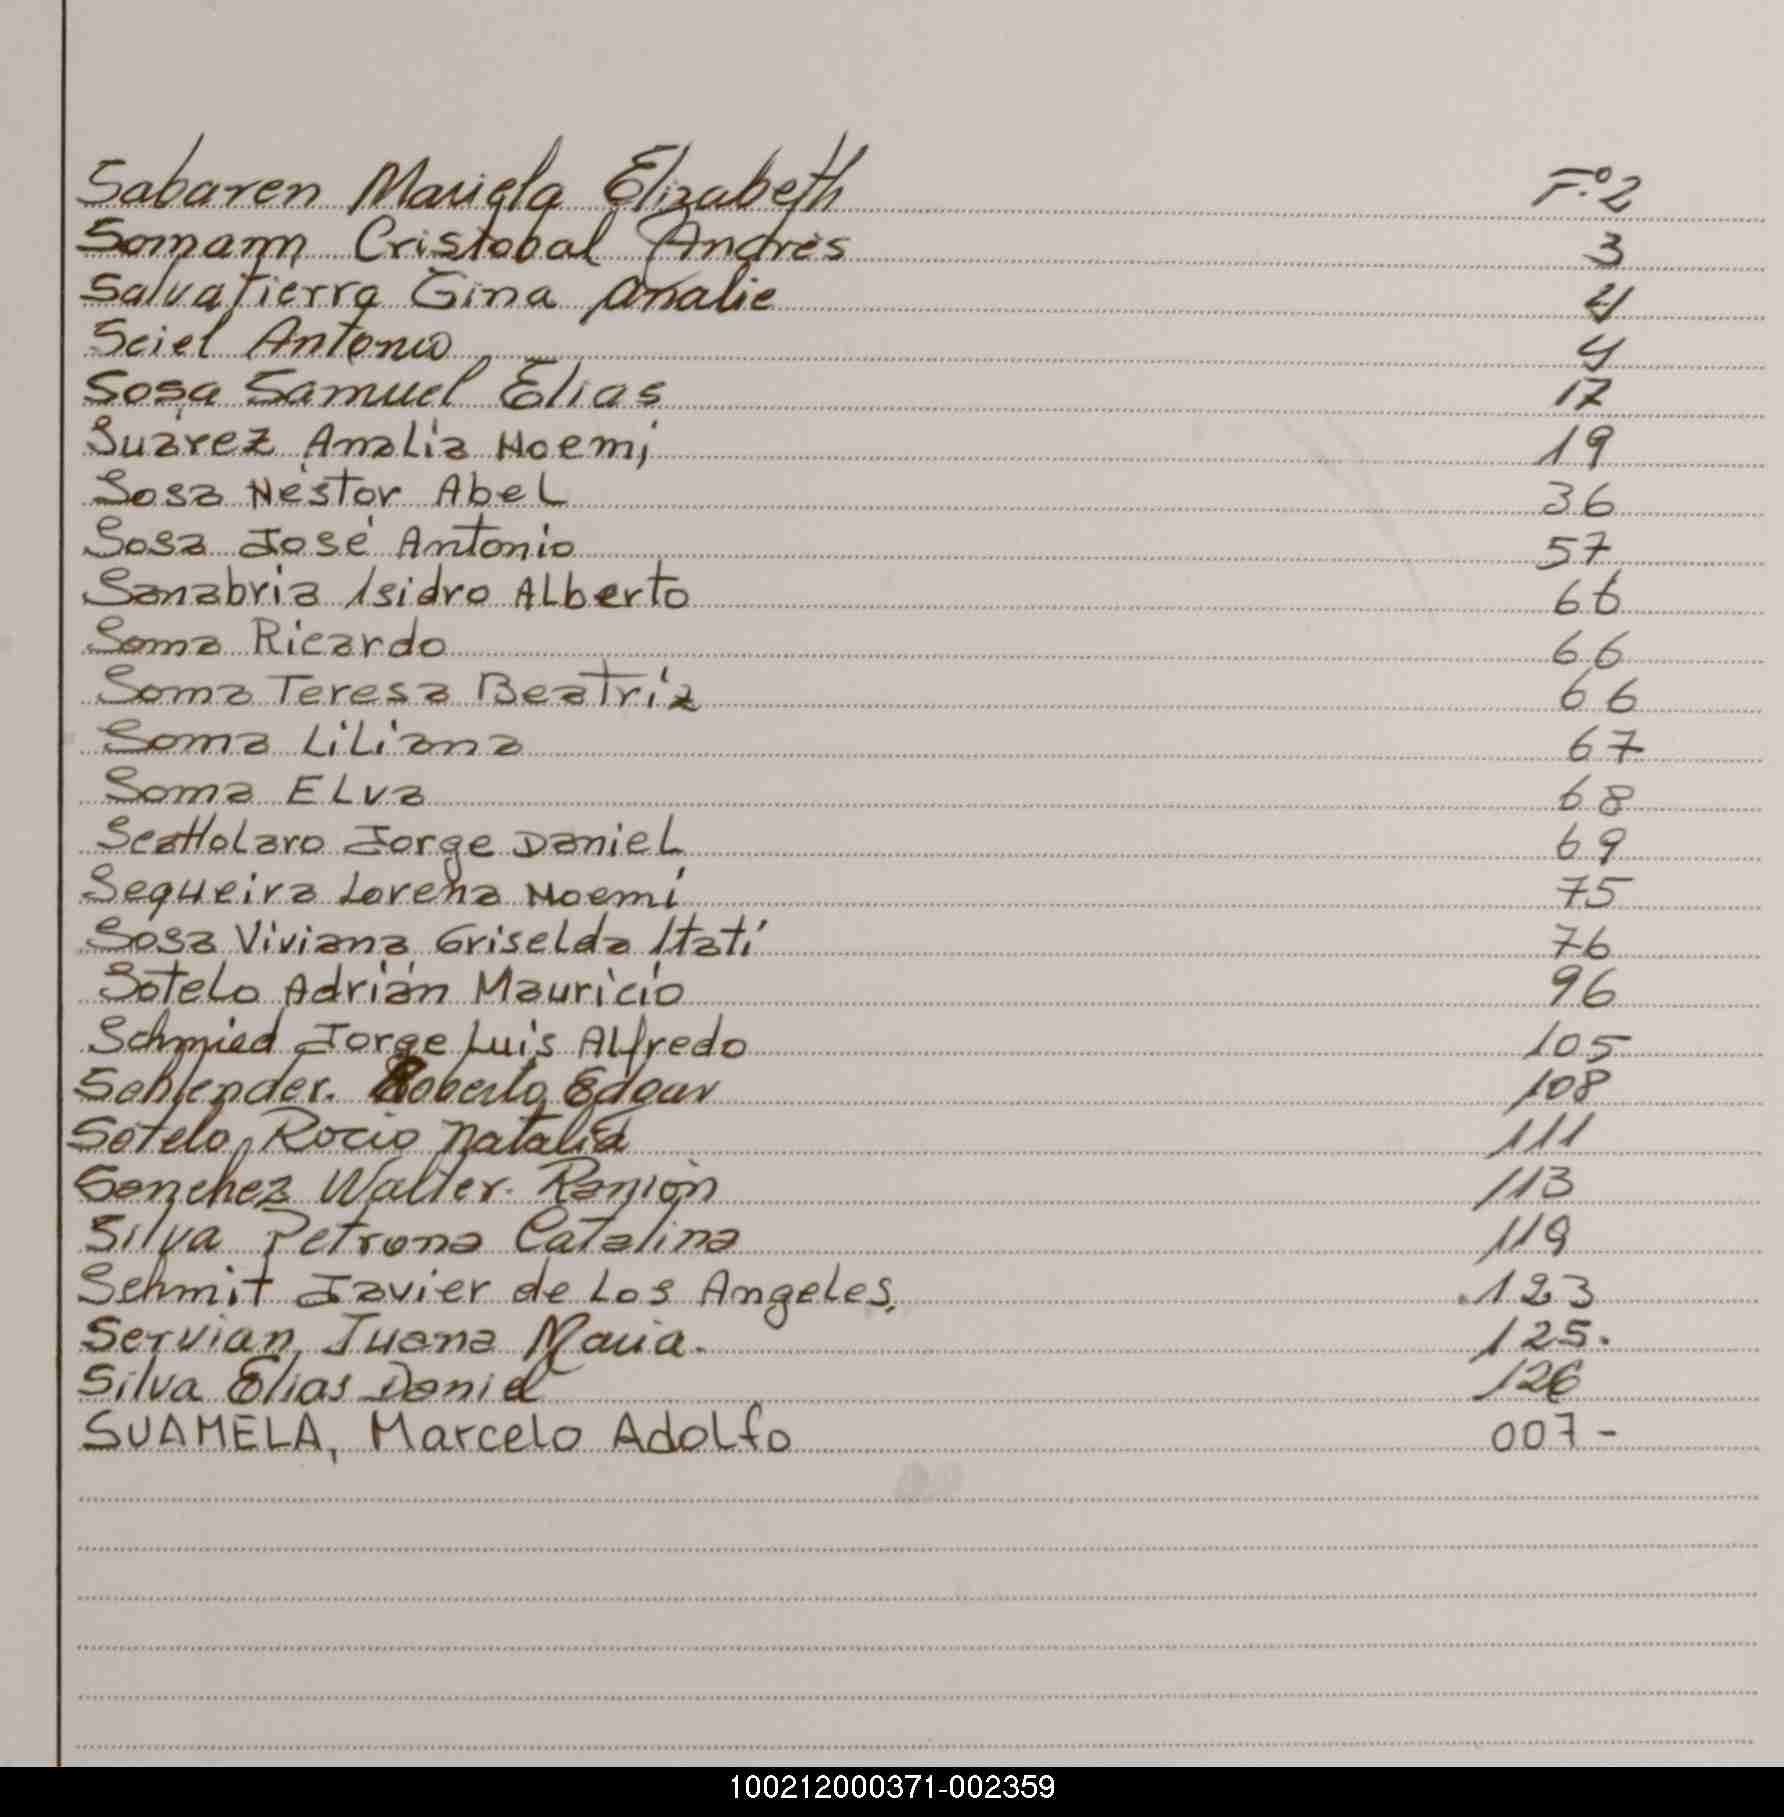 Sabaren Mariela Elizabeth F.º 2
Somann Cristobal Andrés 3
Salvatierra Gina Analie 4
Sciel Antonio 4
Sosa Samuel Elias 17
Suárez Analia Noemi 19
Sosa Néstor Abel 36
Sosa José Antonio 57
Sanabria Isidro Alberto 66
Soma Ricardo 66
Soma Teresa Beatríz 66
Soma Liliana 67
Soma Elva 68
Scattolaro Jorge Daniel 69
Sequeira Lorena Noemí 75
Sosa Viviana Griselda Itatí 76
Sotelo Adrián Mauricio 96
Schmied Jorge Luis Alfredo 105
Schlender. Roberto Edgar 108
Sotelo, Rocio Natalia 111
Sanchez Walter. Ramón 113
Silva Petrona Catalina 119
Schmit Javier de Los Angeles. 123
Servian Juana Maria. 125.
Silva Elias Daniel 126
SUAMELA, Marcelo Adolfo 007-
100212000371-002359